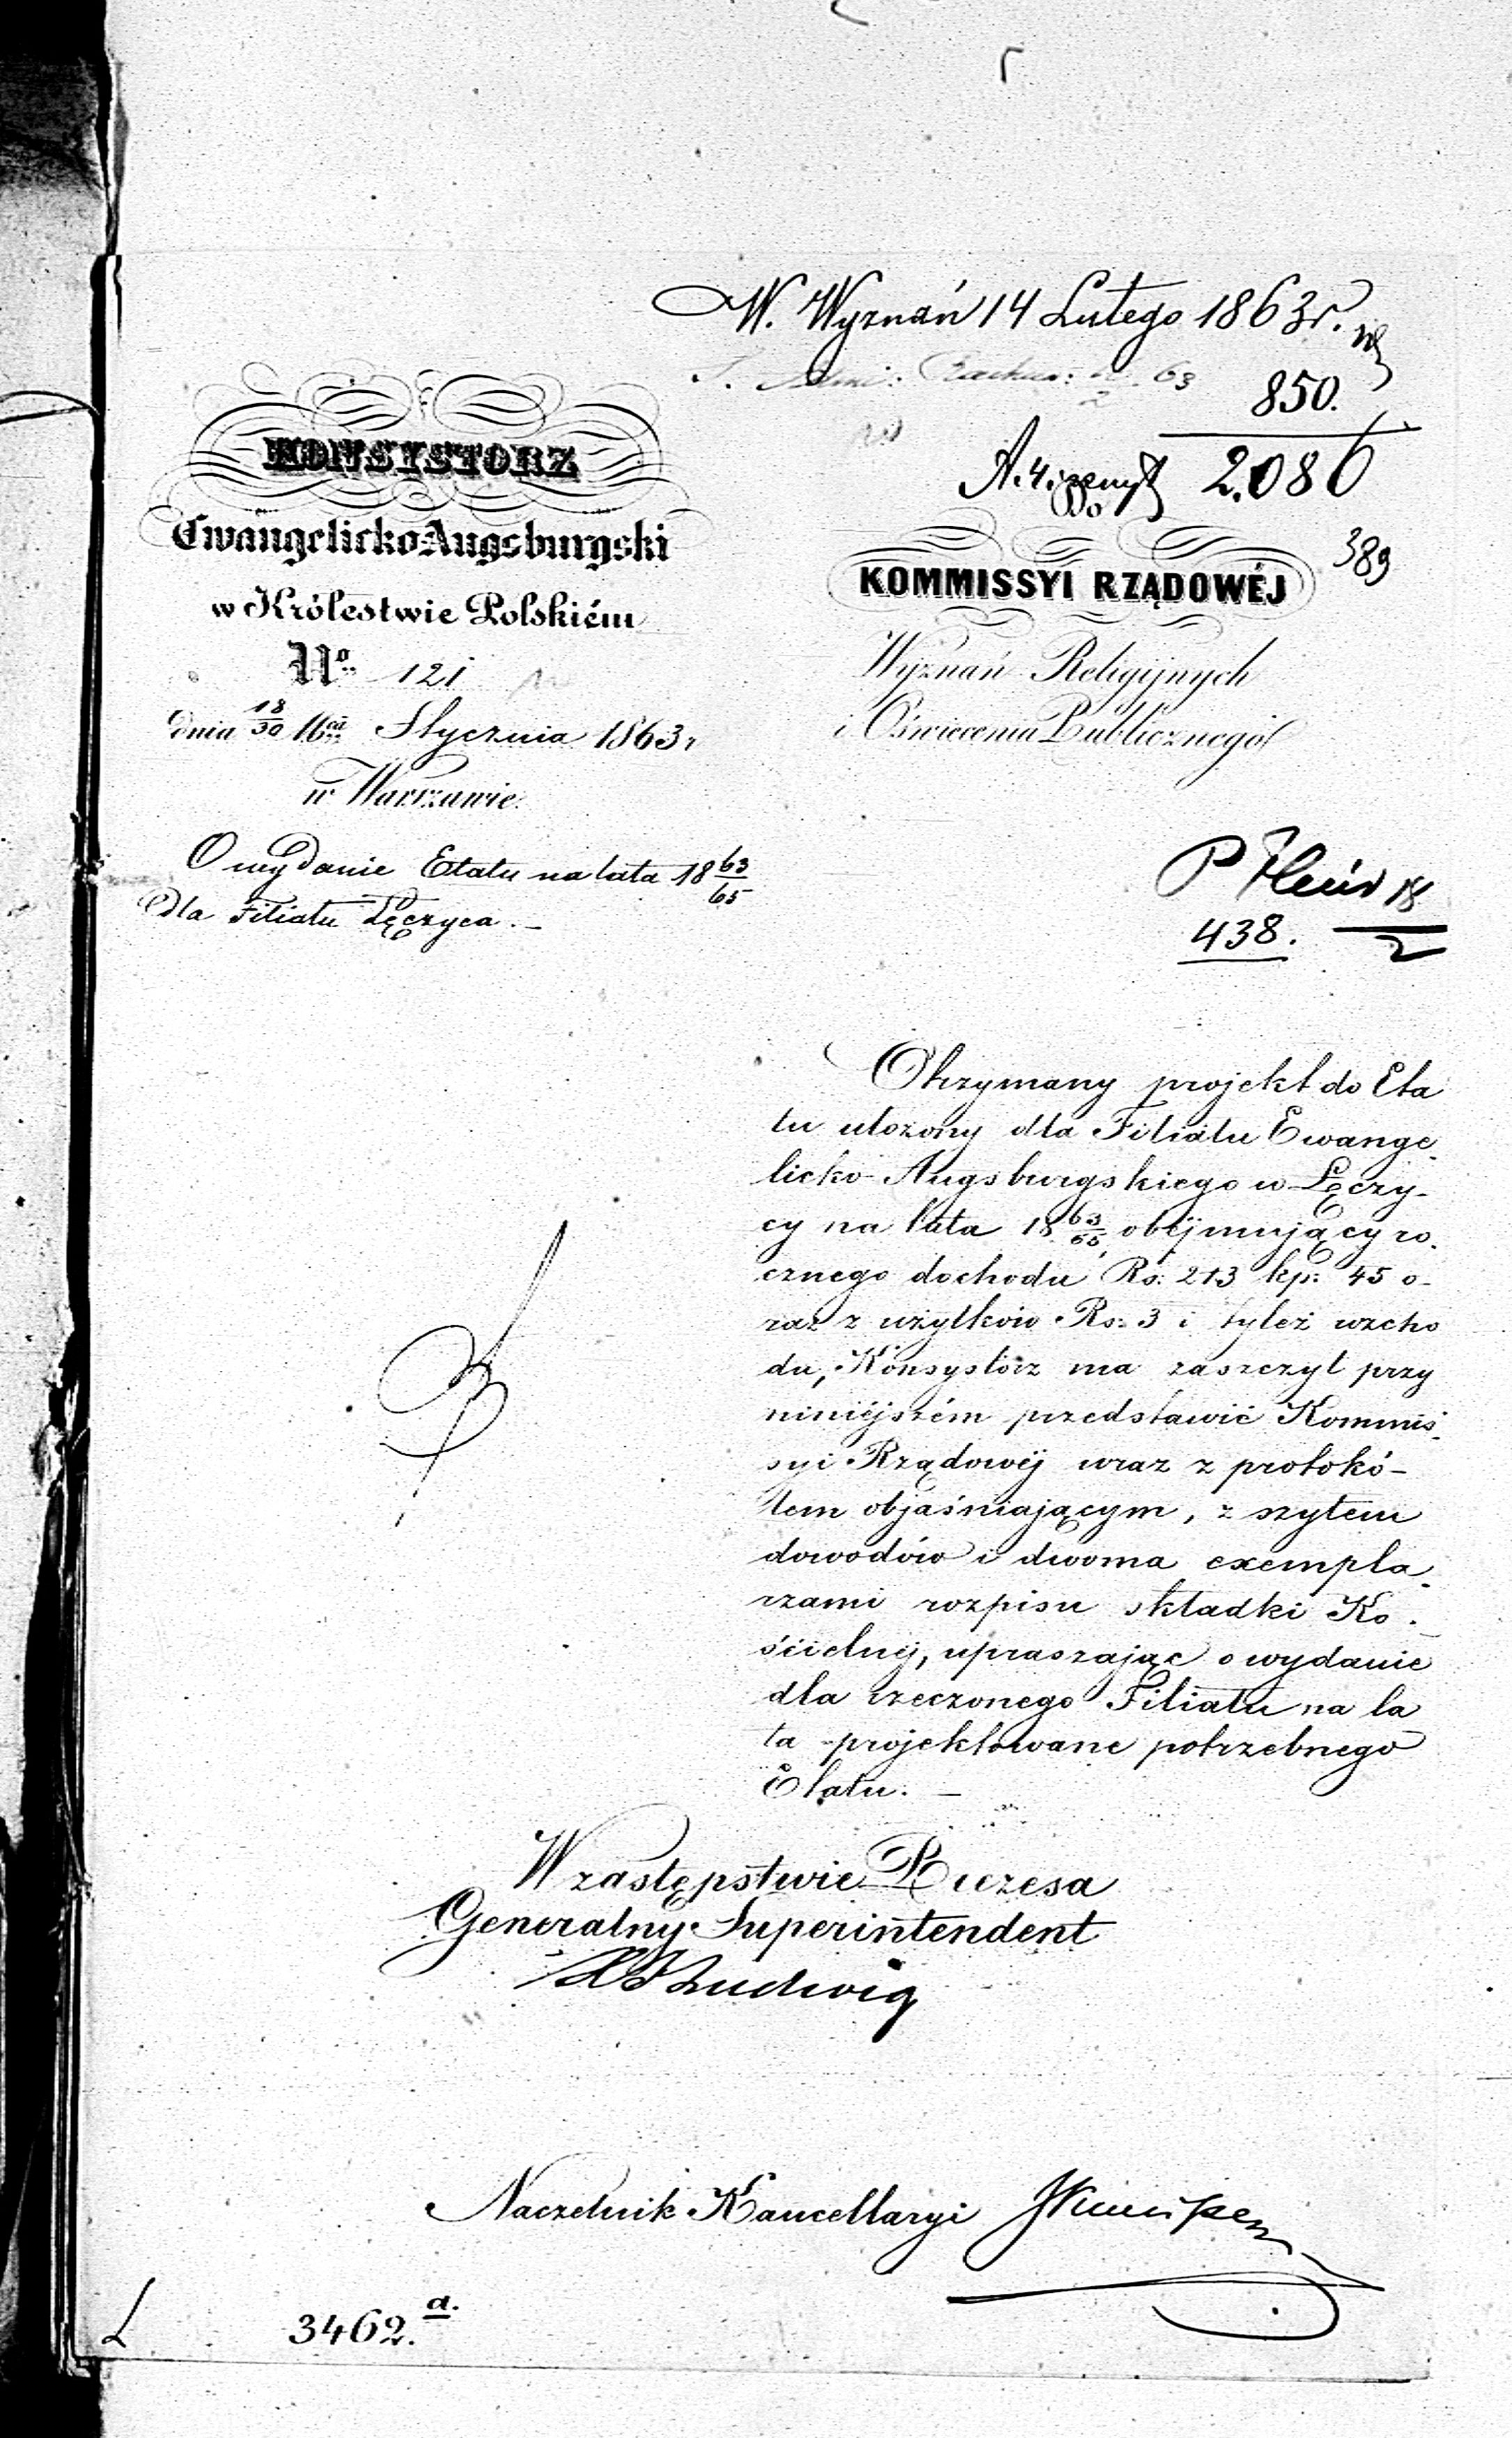 W. Wyznań 14 Lutego 1863 r.
850.
2.086
389
KONSYSTORZ
Ewangelicko-Augsburgski
w Królestwie Polskiém
No 121
dnia 18/30 Stycznia 1863 r
w Warszawie.
O wydanie Etatu na lata 18 63/65
dla Filiału Łęczyca. –
Do
KOMMISSYI RZĄDOWÉJ
Wyznań Religijnych
i Oświecenia Publicznego
P 18/2
438.
Otrzymany projekt do Eta
tu ułożony dla Filiału Ewange-
licko-Augsburgskiego w Łęczy-
cy na lata 18 63/65, obejmujący ro-
cznego dochodu Rs: 213 kp: 45 o-
raz z użytków Rs: 3 i tyleż rozcho
du, Konsystorz ma zaszczyt przy
niniéjszém przedstawić Kommis-
syi Rządowéj wraz z protokó-
łem objaśniającym, z szytem
dowodów i dwoma exempla-
rzami rozpisu składki Ko-
ścielnéj, upraszając o wydanie
dla rzeczonego Filiału na la
ta projektowane potrzebnego
Etatu. –
W zastępstwie Prezesa
Generalny Superintendent
Ludwig
Naczelnik Kancellaryi
3462. a.